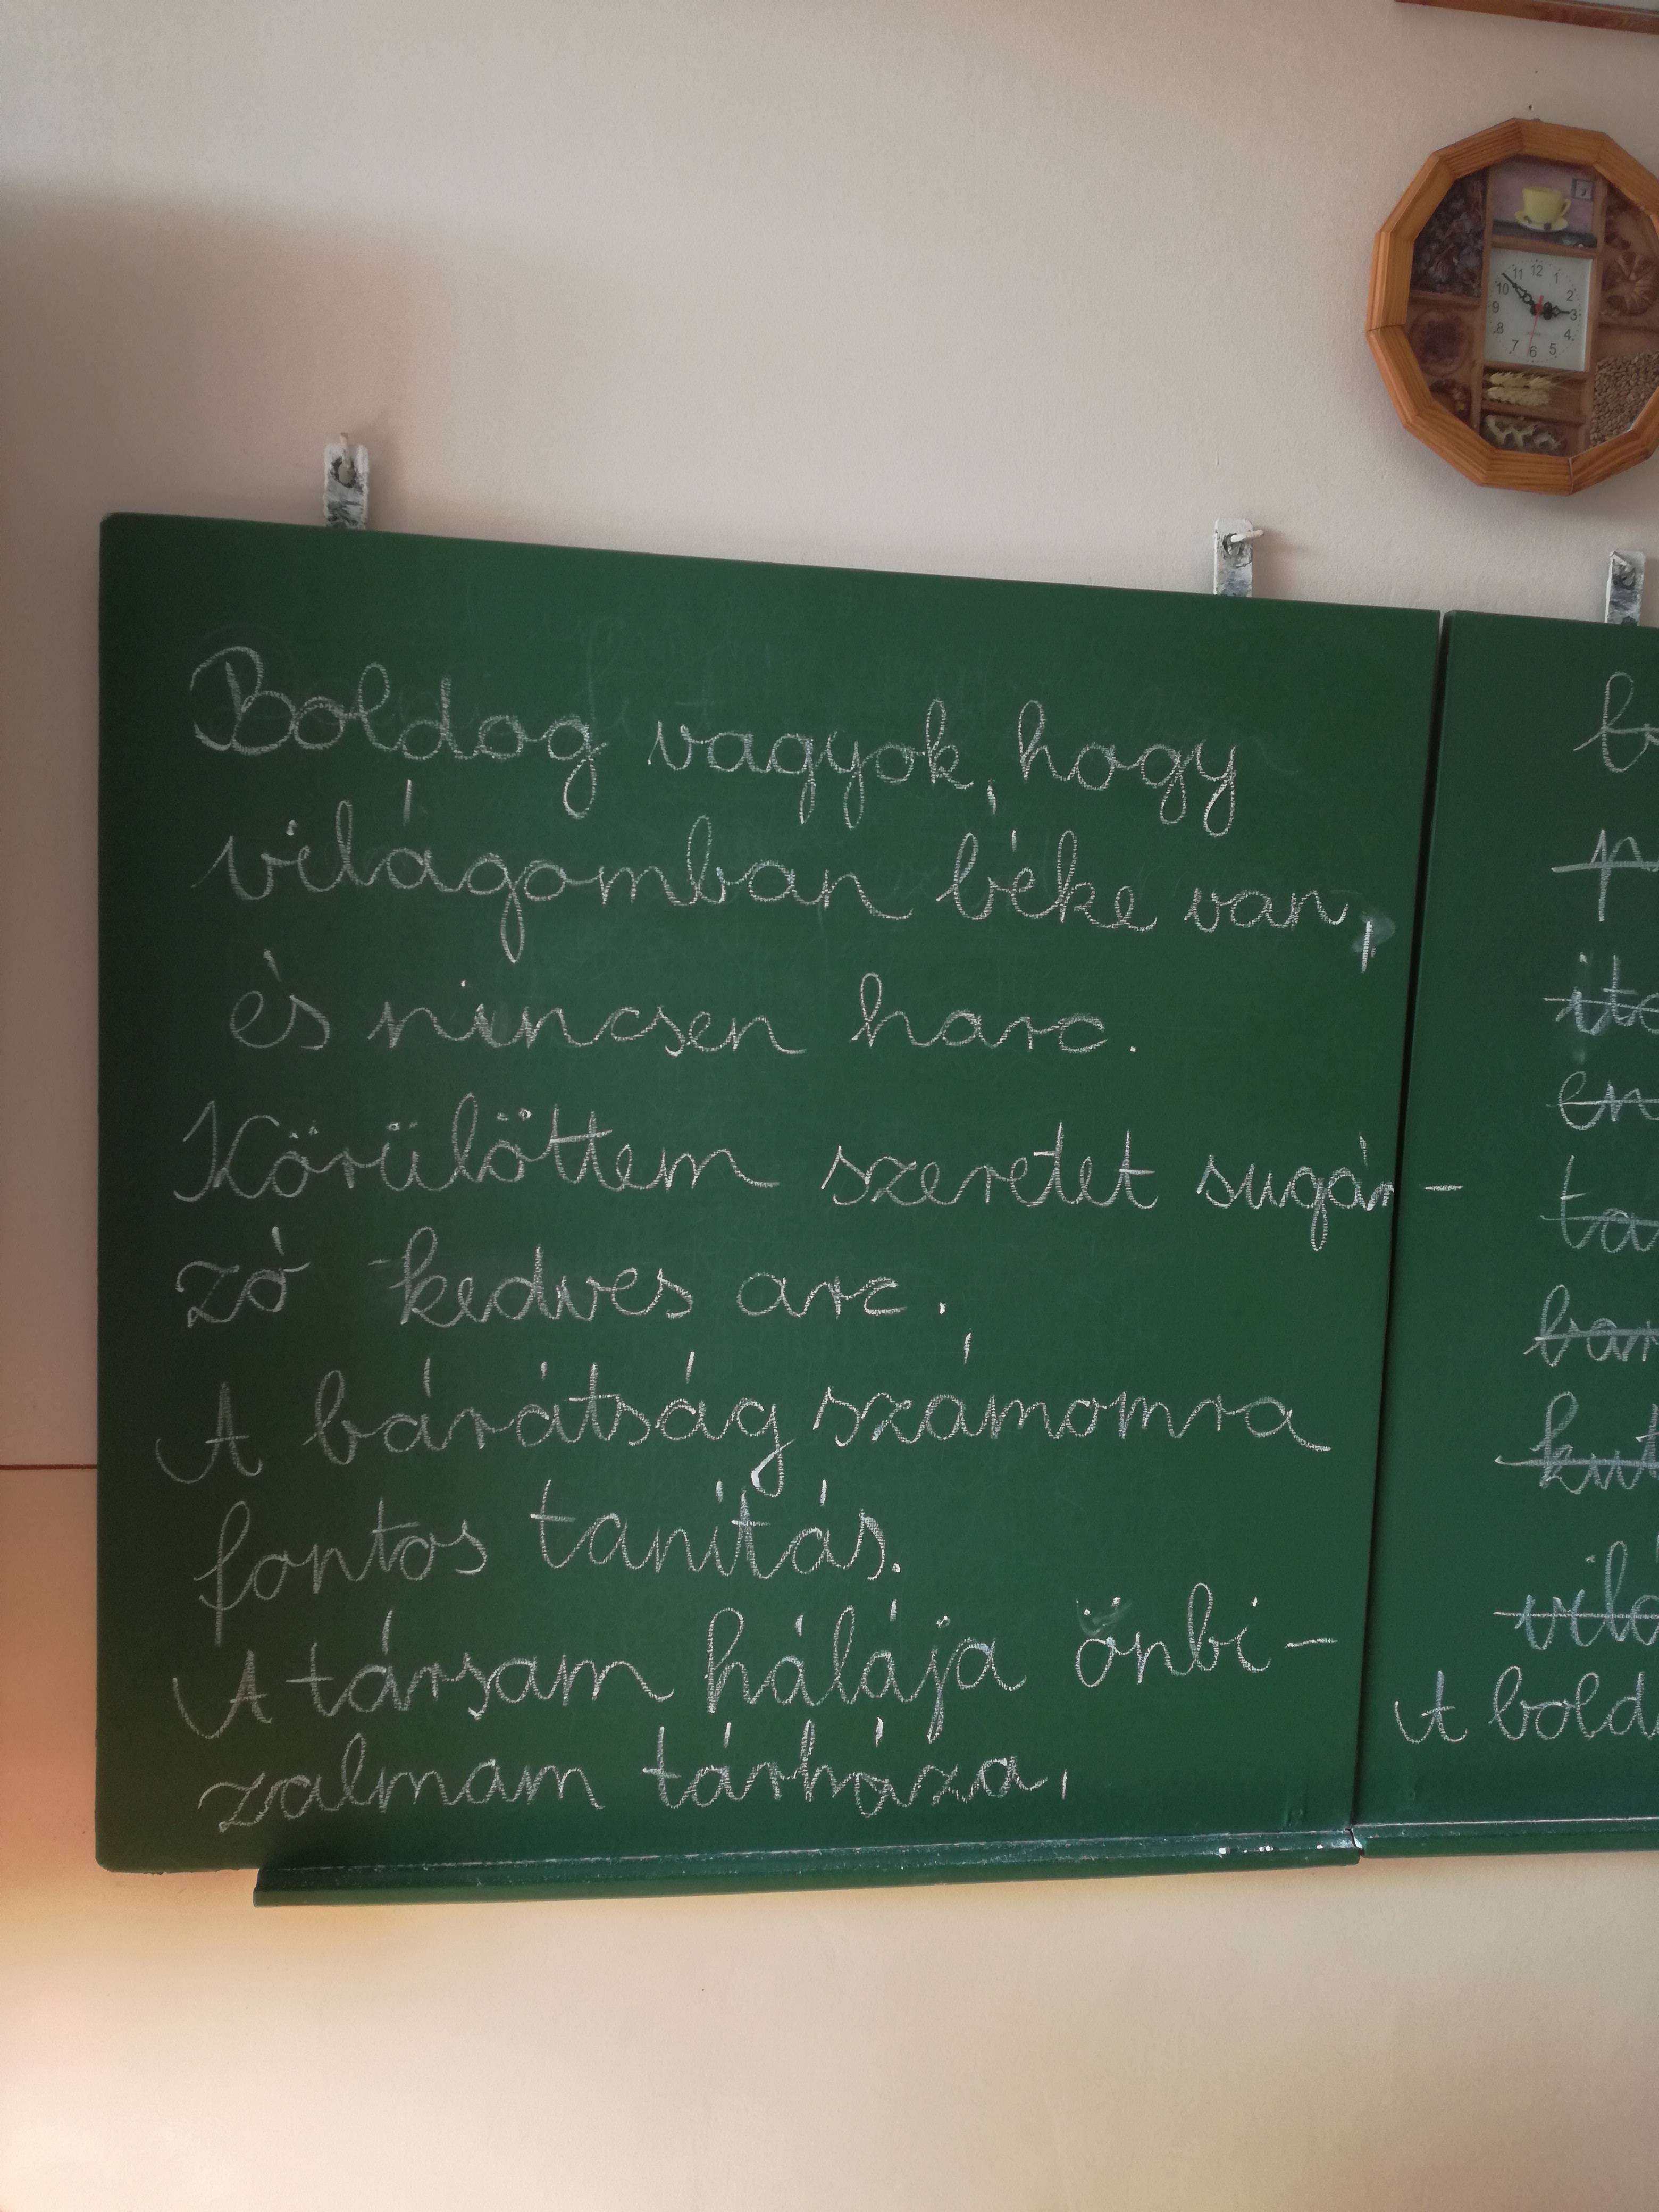 Boldog vagyok, hogy
világomban béke van,
és nincsen harc.
Körülöttem szeretet sugár-
zó kedves arc.
A bárátság számomra
fontos tanítás.
A társam hálája önbi-
zalmam tárháza,
A bold
11 12 1
10 2
9 3
8 4
7 6 5